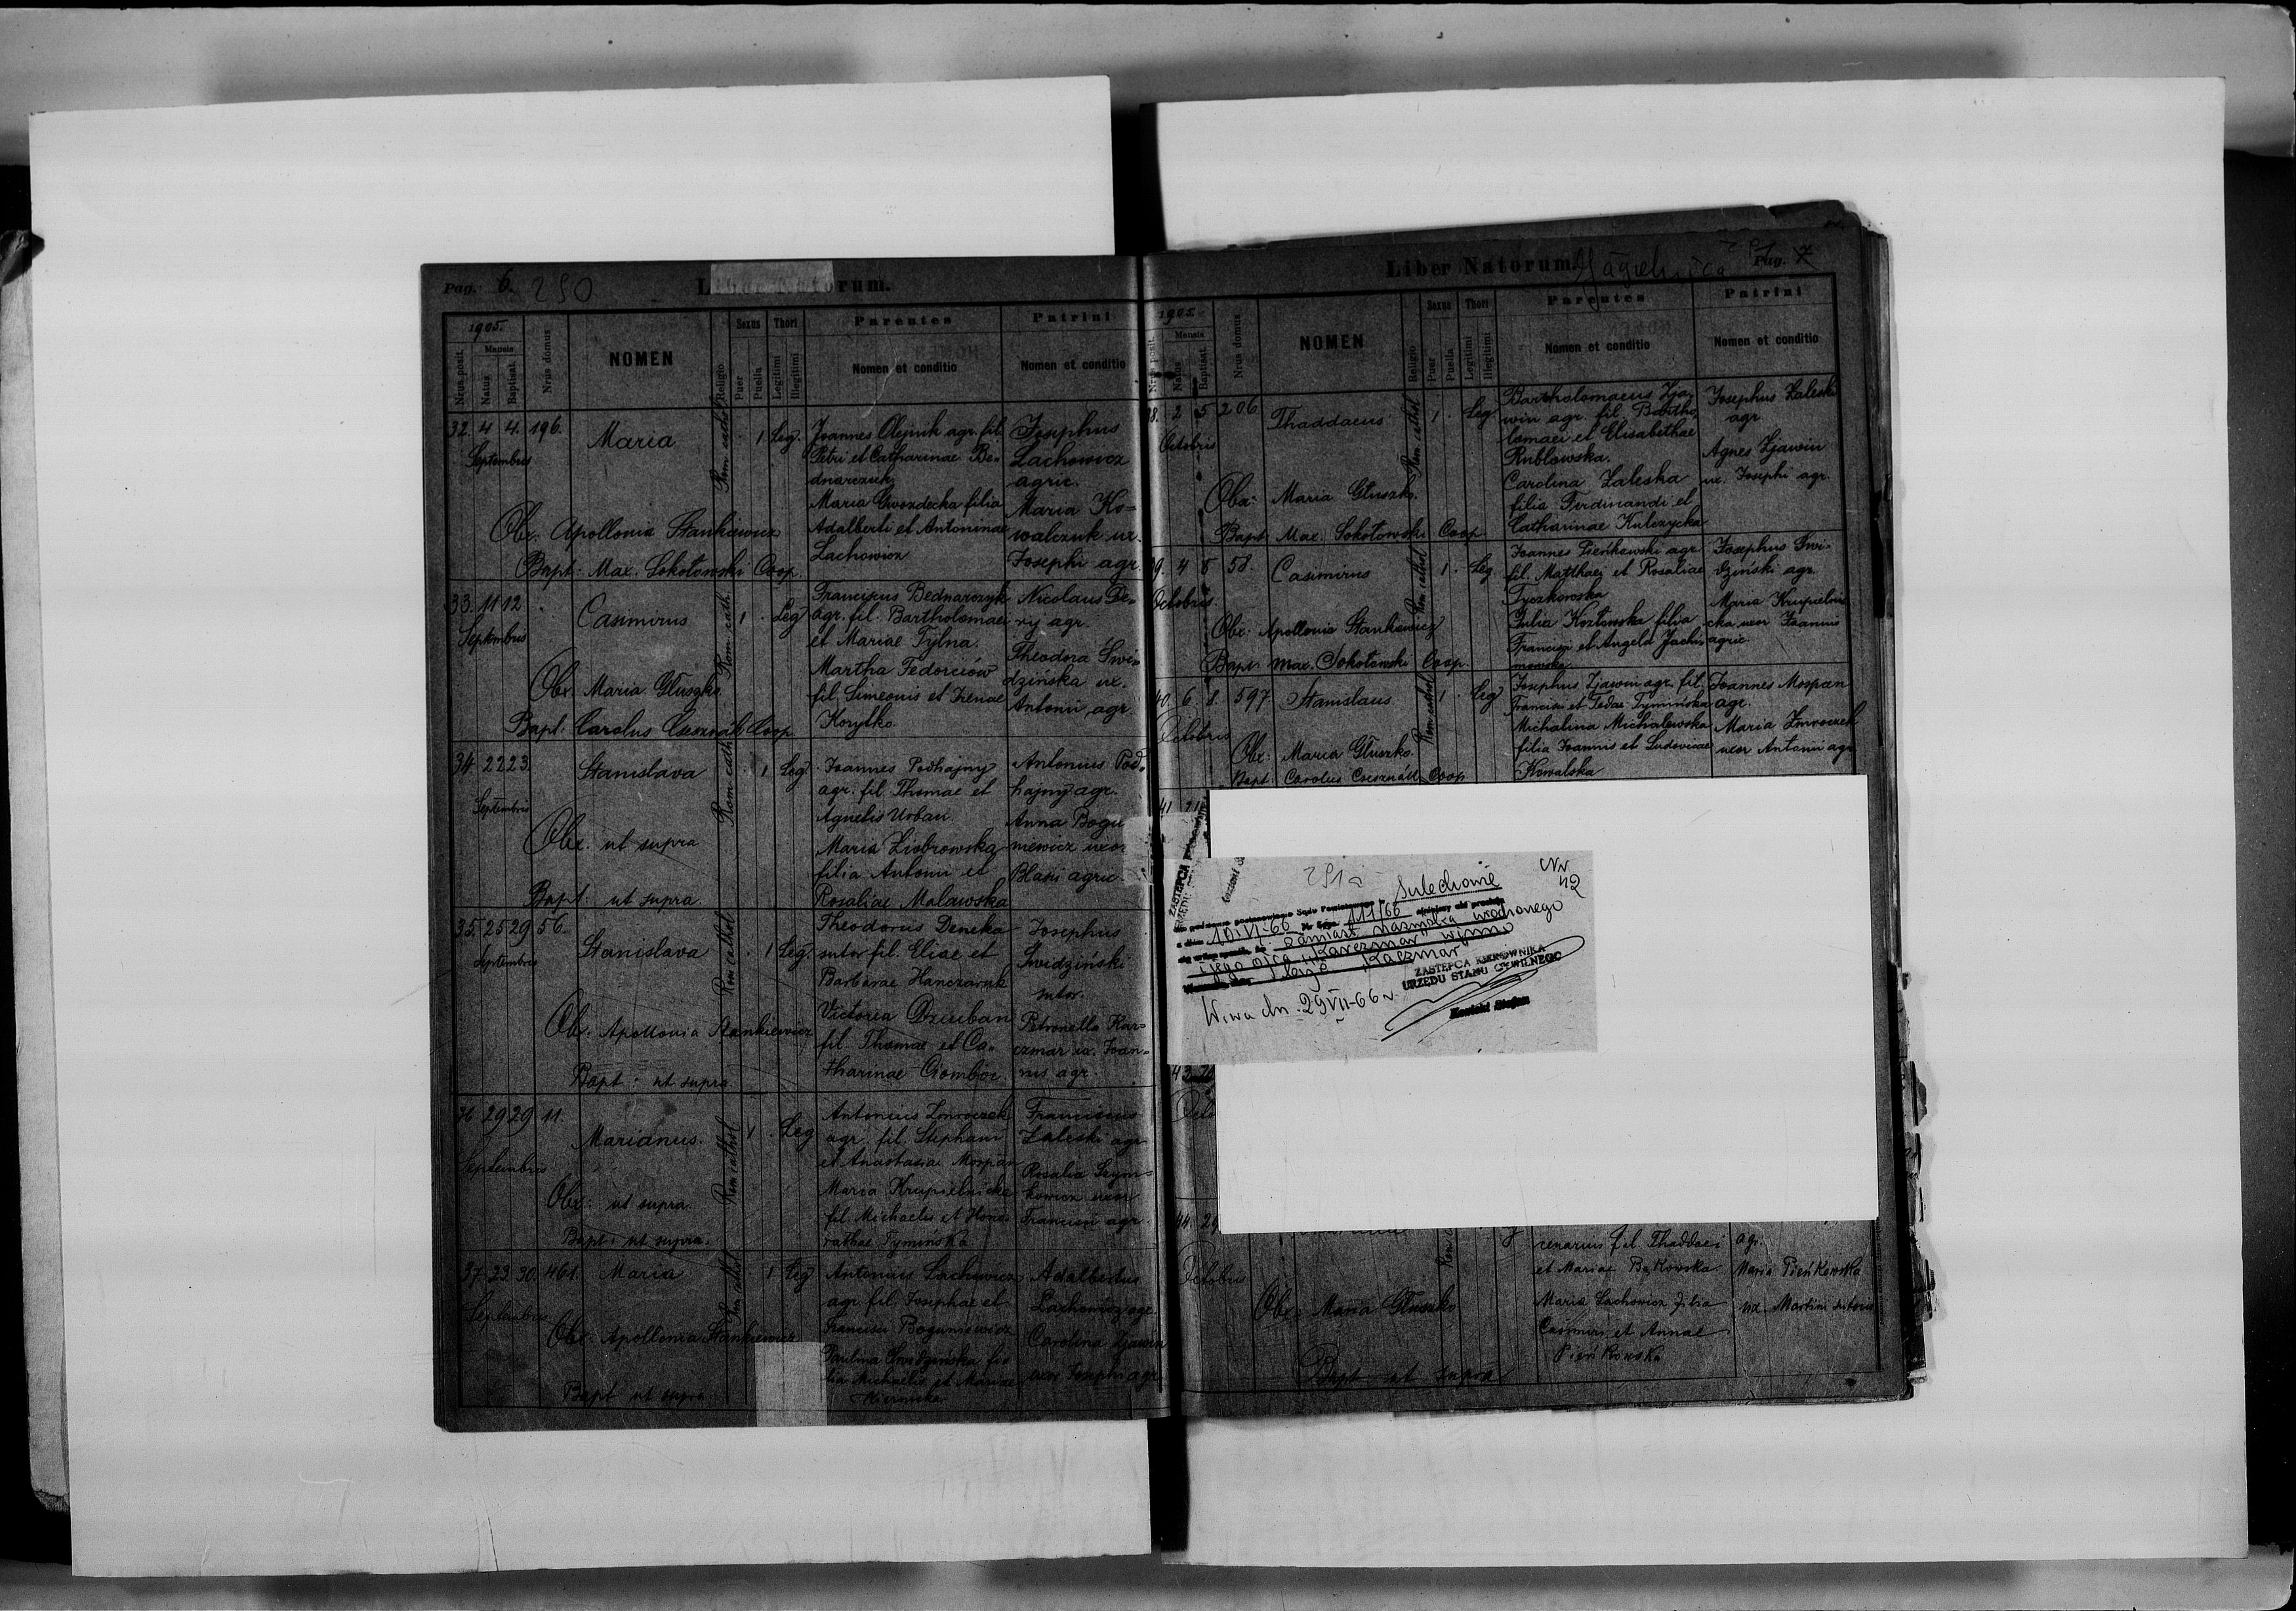 Pag. 6. 250
Liber Natorum.
1905.
Nrus posit.
Mensis
Natus
Baptisat.
Nrus domus
NOMEN
Religio
Sexus
Puer
Puella
Thori
Legitimi
Illegitimi
Parentes
Nomen et conditio
Patrini
Nomen et conditio
32. 4 4. 196.
Septembris
Maria
Rom. cathol.
1 Leg.
Joannes Olejnik agr. fil.
Petri et Catharinae Be-
dnarczuk
Maria Gwozdecka filia
Adalberti et Antoninae
Lachowicz
Josephus
Lachowicz
agric.
Maria Ko-
walczuk ux.
Josephi agr.
Obx. Apollonia Stankiewicz
Bapt: Max. Sokołowski Coop.
33. 11 12
Septembris
Casimirus
Rom. cath.
1 Leg
Franciscus Bednarczyk
agr. fil. Bartholomaei
et Mariae Tylna.
Martha Fedorciów
fil. Simeonis et Irenae
Korytko.
Nicolaus De-
ry agr.
Theodora Swi-
dzińska ux.
Antonii agr.
Obx. Maria Głuszko.
Bapt: Carolus Csesznák Coop.
34. 22 23.
Septembris
Stanislava
Rom. cath.
1 Leg.
Joannes Podhajny
agr. fil. Thomae et
Agnetis Urban.
Maria Ziobrowska
filia Antonii et
Rosaliae Malawska
Antonius Pod-
hajny agr.
Anna Bogu
niewicz uxor
Blasii agric.
Obx. ut supra
Bapt: ut supra
35. 25 29 56.
Septembris
Stanislava
Rom. cathol.
1 Leg.
Theodorus Deneka
sutor fil. Eliae et
Barbarae Hanczaruk
Victoria Dziuban
fil. Thomae et Ca-
tharinae Ciombor.
Josephus
Swidziński
sutor.
Petronella Kar-
czmar ux. Joan-
nis agr.
Obx: Apollonia Stankiewicz
Bapt: ut supra
36 29 29 11.
Septembris
Marianus.
Rom. cathol.
1 Leg
Antonius Zmroczek
agr. fil. Stephani
et Anastasia Mospan
Maria Krupielnicka
fil. Michaelis et Hono-
rathae Tyminska
Franciscus
Zaleski agr.
Rosalia Szym-
kowicz uxor
Francisci agr.
Obx: ut supra
Bapt: ut supra.
37. 23 30. 461.
Septembris
Maria
Rom. cathol.
1 Leg
Antonius Lachowicz
agr. fil. Josephae et
Francisci Boguniewicz
Paulina Swidzińska fi-
lia Michaelis et Mariae
Adalbertus
Lachowicz agr.
Carolina Zjawin
uxor Josephi agr.
Obx: Apollonia Stankiewicz
Bapt ut supra
Liber Natorum. Jagielnica
Pag. 7
1905
Nr. posit.
Mensis
Natus
Baptisat.
Nrus domus
NOMEN
Religio
Sexus
Puer
Puella
Thori
Legitimi
Illegitimi
Parentes
Nomen et conditio
Patrini
Nomen et conditio
38. 2 5 206
Octobris
Thaddaeus
Rom. cathol.
1 Leg.
Bartholomaeus Zja-
win agr. fil. Bartho-
lomaei et Elisabethae
Rublowska.
Carolina Zaleska
filia Ferdinandi et
Catharinae Kulczycka
Josephus Zaleski
agr.
Agnes Zjawin
ux. Josephi agr.
Obx: Maria Głuszko.
Bapt. Max. Sokołowski Coop
39. 4 8 58.
Octobris
Casimirus
Rom. cathol.
1. Leg
Joannes Pieńkowski agr
fil. Matthaei et Rosaliae
Tyczkowska
Julia Kozłowska filia
Francisci et Angela Jachi-
mowska.
Josephus Swi-
dziński agr.
Maria Krupielni-
cka uxor Joannis
agric.
Obx: Apollonia Stankiewicz
Bapt: Max. Sokołowski Coop.
40. 6. 8. 597
Octobris
Stanislaus
Rom. cathol.
1. Leg
Josephus Zjawin agr. fil.
Francisci et Teclae Tymińska
Michalina Michalewska
filia Joannis et Ludovicae
Kowalska
Joannes Mospan
agr.
Maria Zmroczek
uxor Antonii agr
Obx: Maria Głuszko.
Bapt: Carolus Csesznák Coop
41 21
251a
Nr 42
Sulechowie
z dnia 10.VI.66 Nr 111/66
zamiast nazwiska urodzonego
i jego ojca "Karczmar" winno
"Kaczmar"
W-wa dn. 29 VII-66 r.
ZASTĘPCA KIEROWNIKA
URZĘDU STANU CYWILNEGO
43 20
Octo
44. 29
Octobris
cenarius fil. Thaddaei
et Mariae Bąkowska
Maria Lachowicz filia
Casimiri et Annae
Pieńkowska
agr.
Maria Pieńkowska
ux. Martini sutoris
Obx: Maria Głuszko
Bapt ut supra